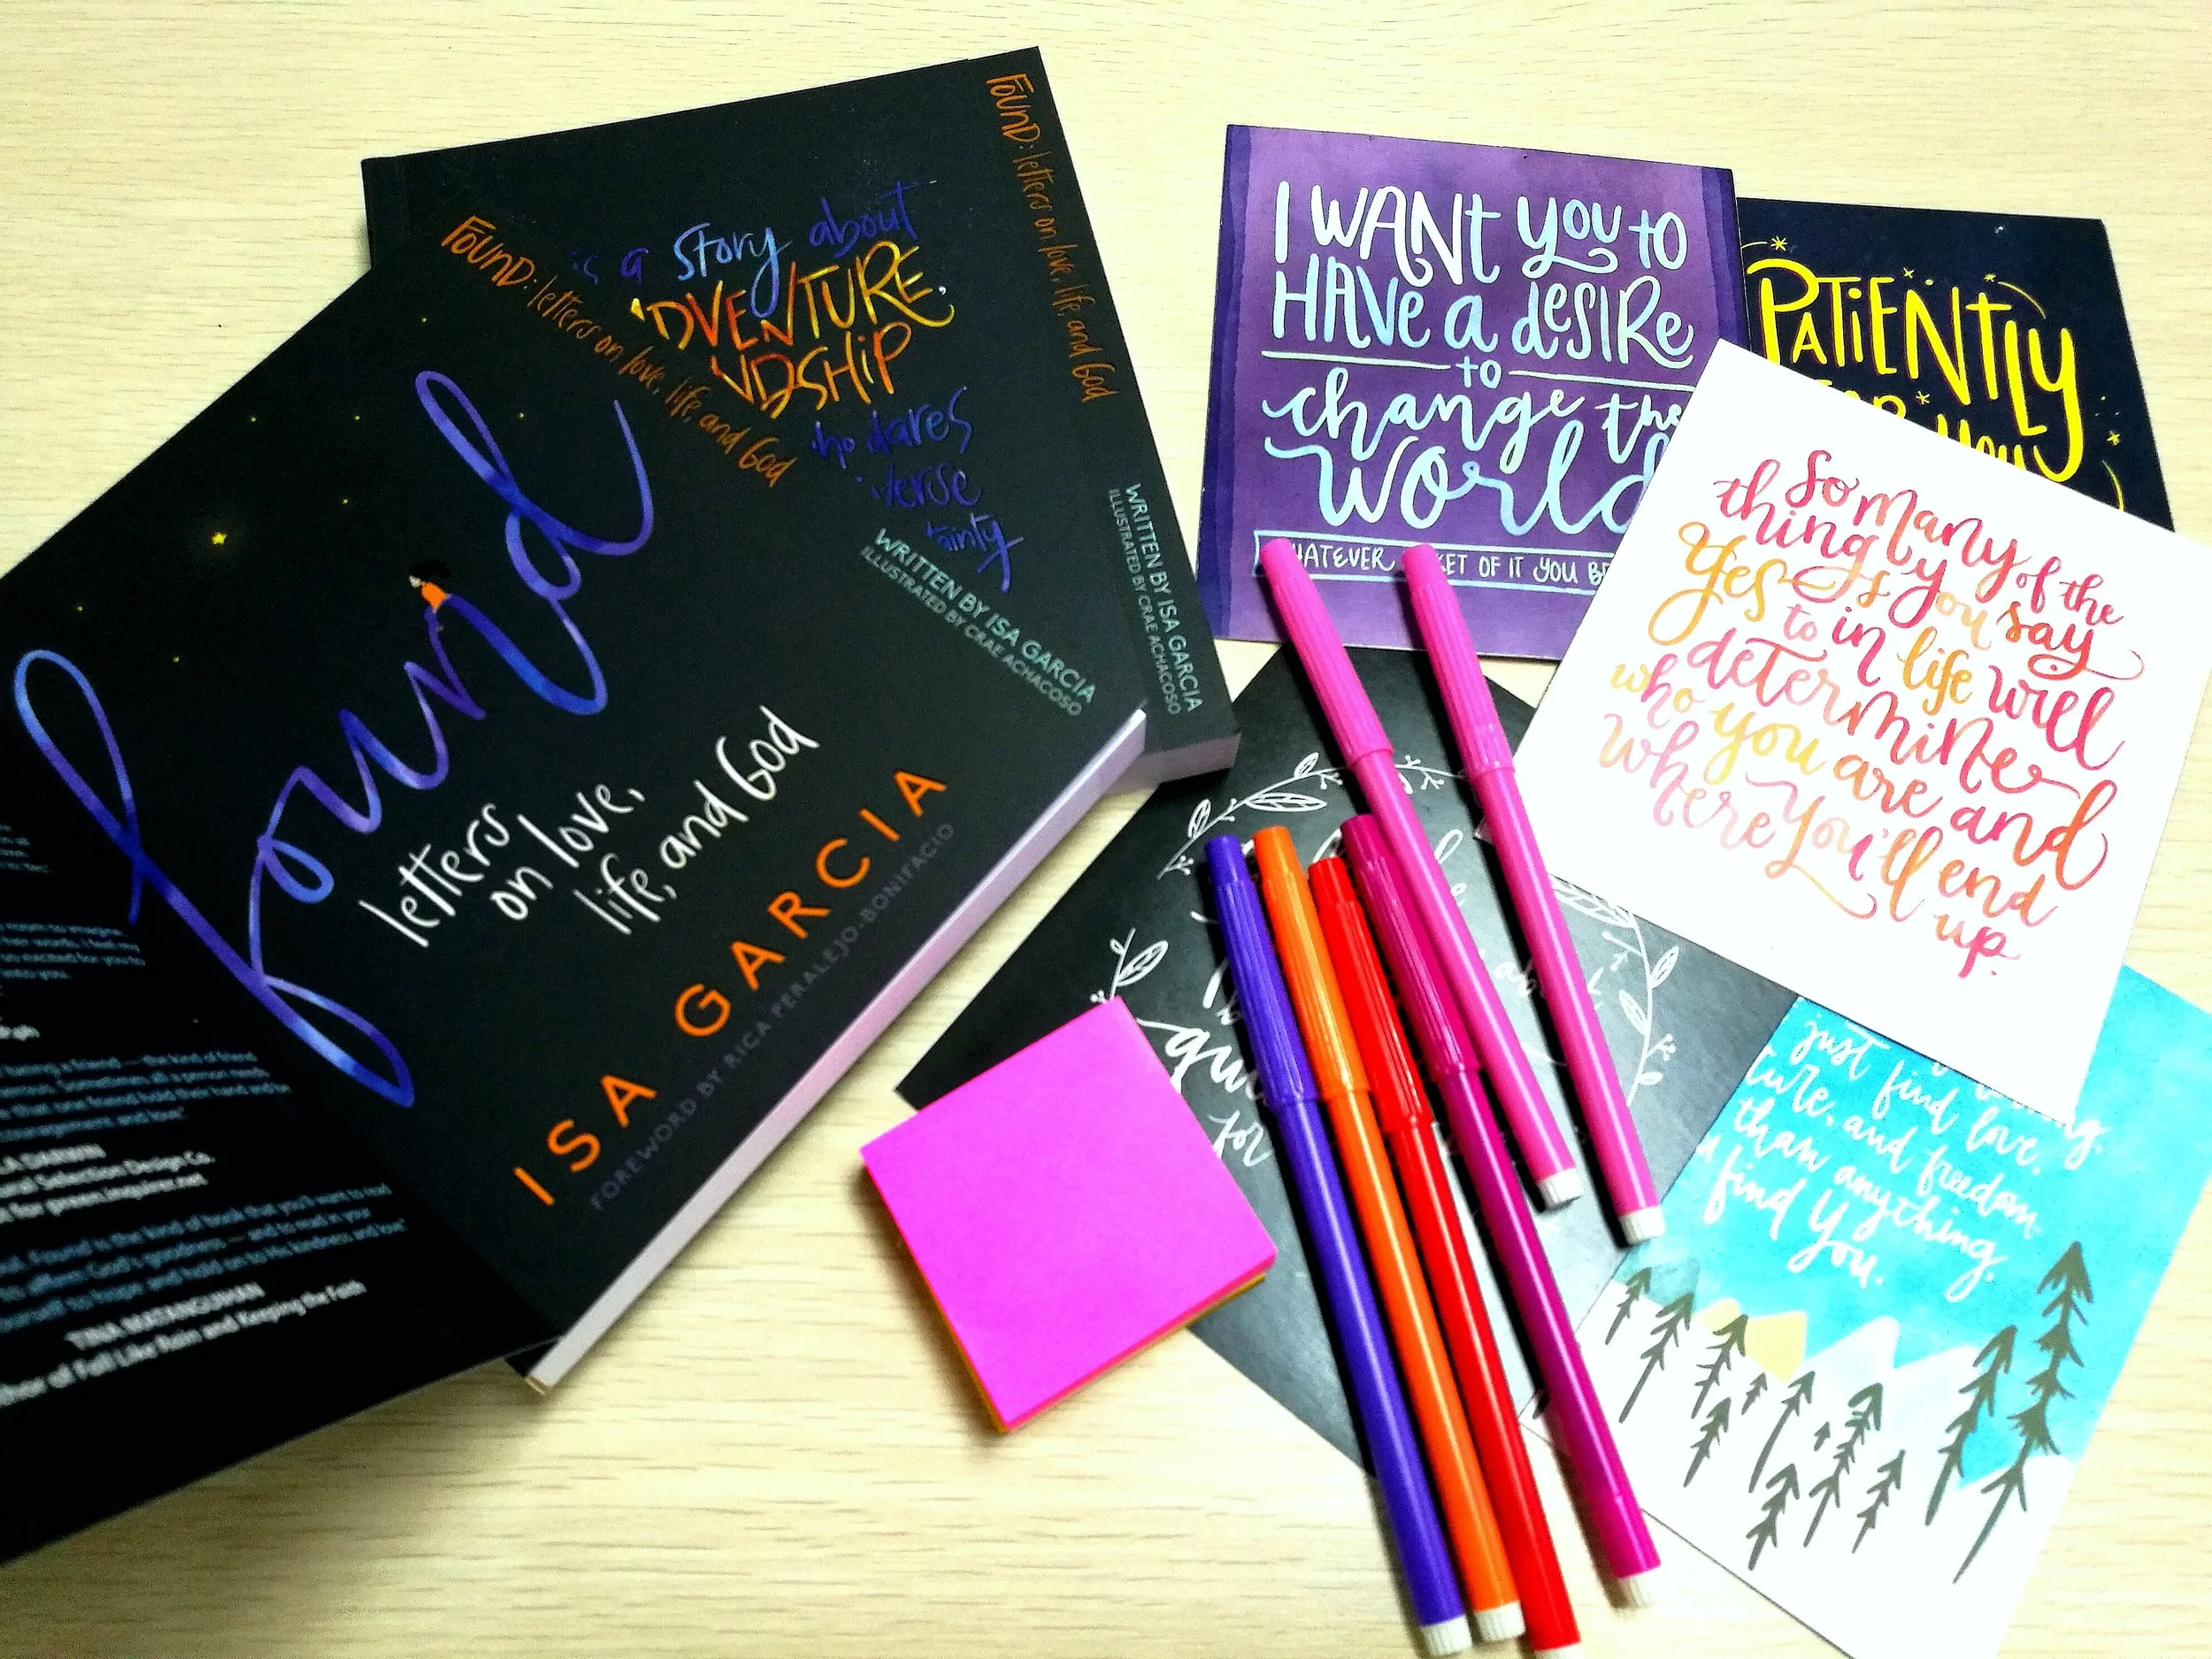 found
letters
on love,
life, and God
ISA GARCIA
FOREWORD BY RICA PERALEJO-BONIFACIO
FOUND: letters on love, life, and God
WRITTEN BY ISA GARCIA
ILLUSTRATED BY CRAE ACHACOSO
is a story about
DVENTURE,
NDSHIP
who dares
verse
tainty
FOUND: letters on love, life, and God
WRITTEN BY ISA GARCIA
ILLUSTRATED BY CRAE ACHACOSO
having a friend — the kind of friend
Sometimes all a person needs
that one friend hold their hand and
and Selection Design Co.
for preen.inquirer.net
Found is the kind of book that you'll want to read
affirm God's goodness — and to read in your
to hope and hold on to His kindness and love"
TINA MATANGUIHAN
author of Fall Like Rain and Keeping the Faith
I WANT YOU TO
HAVE A DESIRE
TO
change the
World
WHATEVER POCKET OF IT YOU
PATIENTLY
FOR YOU
So many of the
things you say
Yes to in life will
determine
who you are and
where you'll end
up.
for
just find love,
ture, and freedom
than anything,
find You.